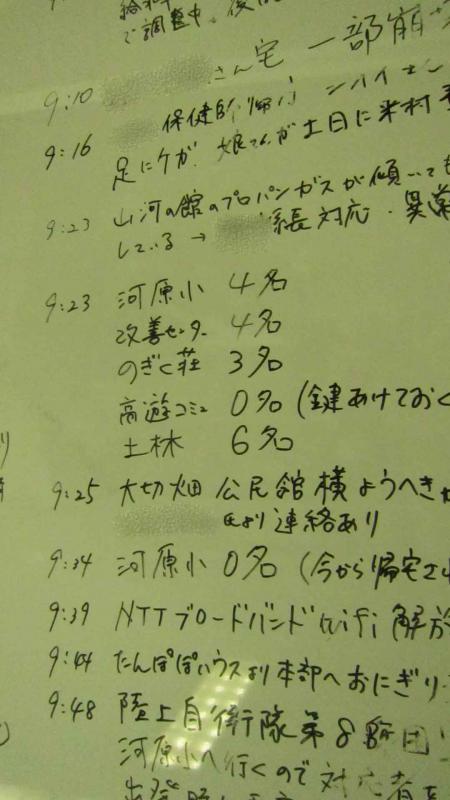 で調整中。後
9:10 さん宅 一部崩
保健師
9:16 足にケガ、娘さんが土日に米村
9:23 山河の館のプロパンガスが傾いて
している → 係長対応・異常
9:23 河原小 4名
改善センター 4名
のぎく荘 3名
高遊コミュ 0名 (鍵あけておく
土林 6名
9:25 大切畑 公民館横ようへき
氏より連絡あり
9:34 河原小 0名 (今から帰宅
9:39 NTTブロードバンド wifi 解放
9:44 たんぽぽハウスより本部へおにぎり
9:48 陸上自衛隊第8師団
河原小へ行くので対応者を